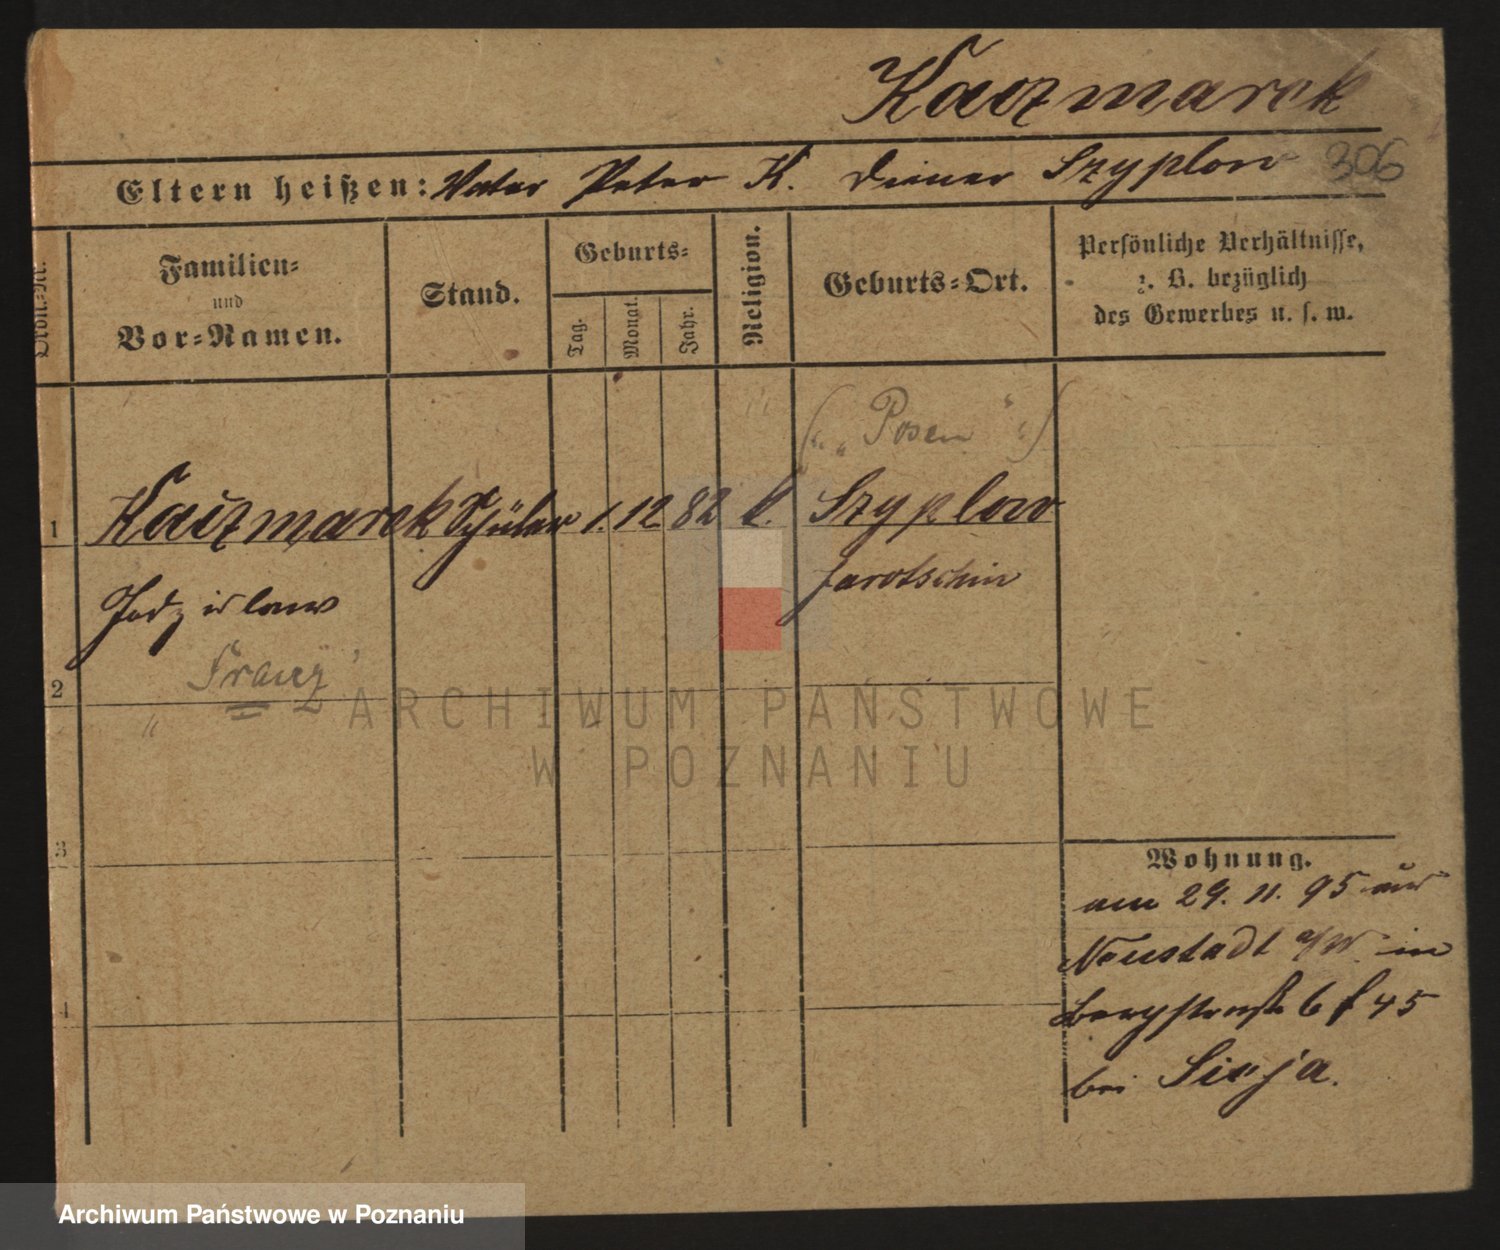 Kaczmarek
Eltern heißen: Vater Peter K. Diener Szyplow 306
Ordn.-Nr.
Familien-
und
Vor-Namen.
Stand.
Geburts-
Tag.
Monat.
Jahr.
Religion.
Geburts-Ort.
Persönliche Verhältnisse,
z. B. bezüglich
des Gewerbes u. s. w.
(„ Posen “)
1 Kaczmarek Schüler 1. 12 82 k. Szyplow
Jarotschin
2
3
4
Wohnung.
am 29. 11. 95 aus
Neustadt a/W. in
Bergstraße 6 f 45
bei
ARCHIWUM PAŃSTWOWE
W POZNANIU
Archiwum Państwowe w Poznaniu